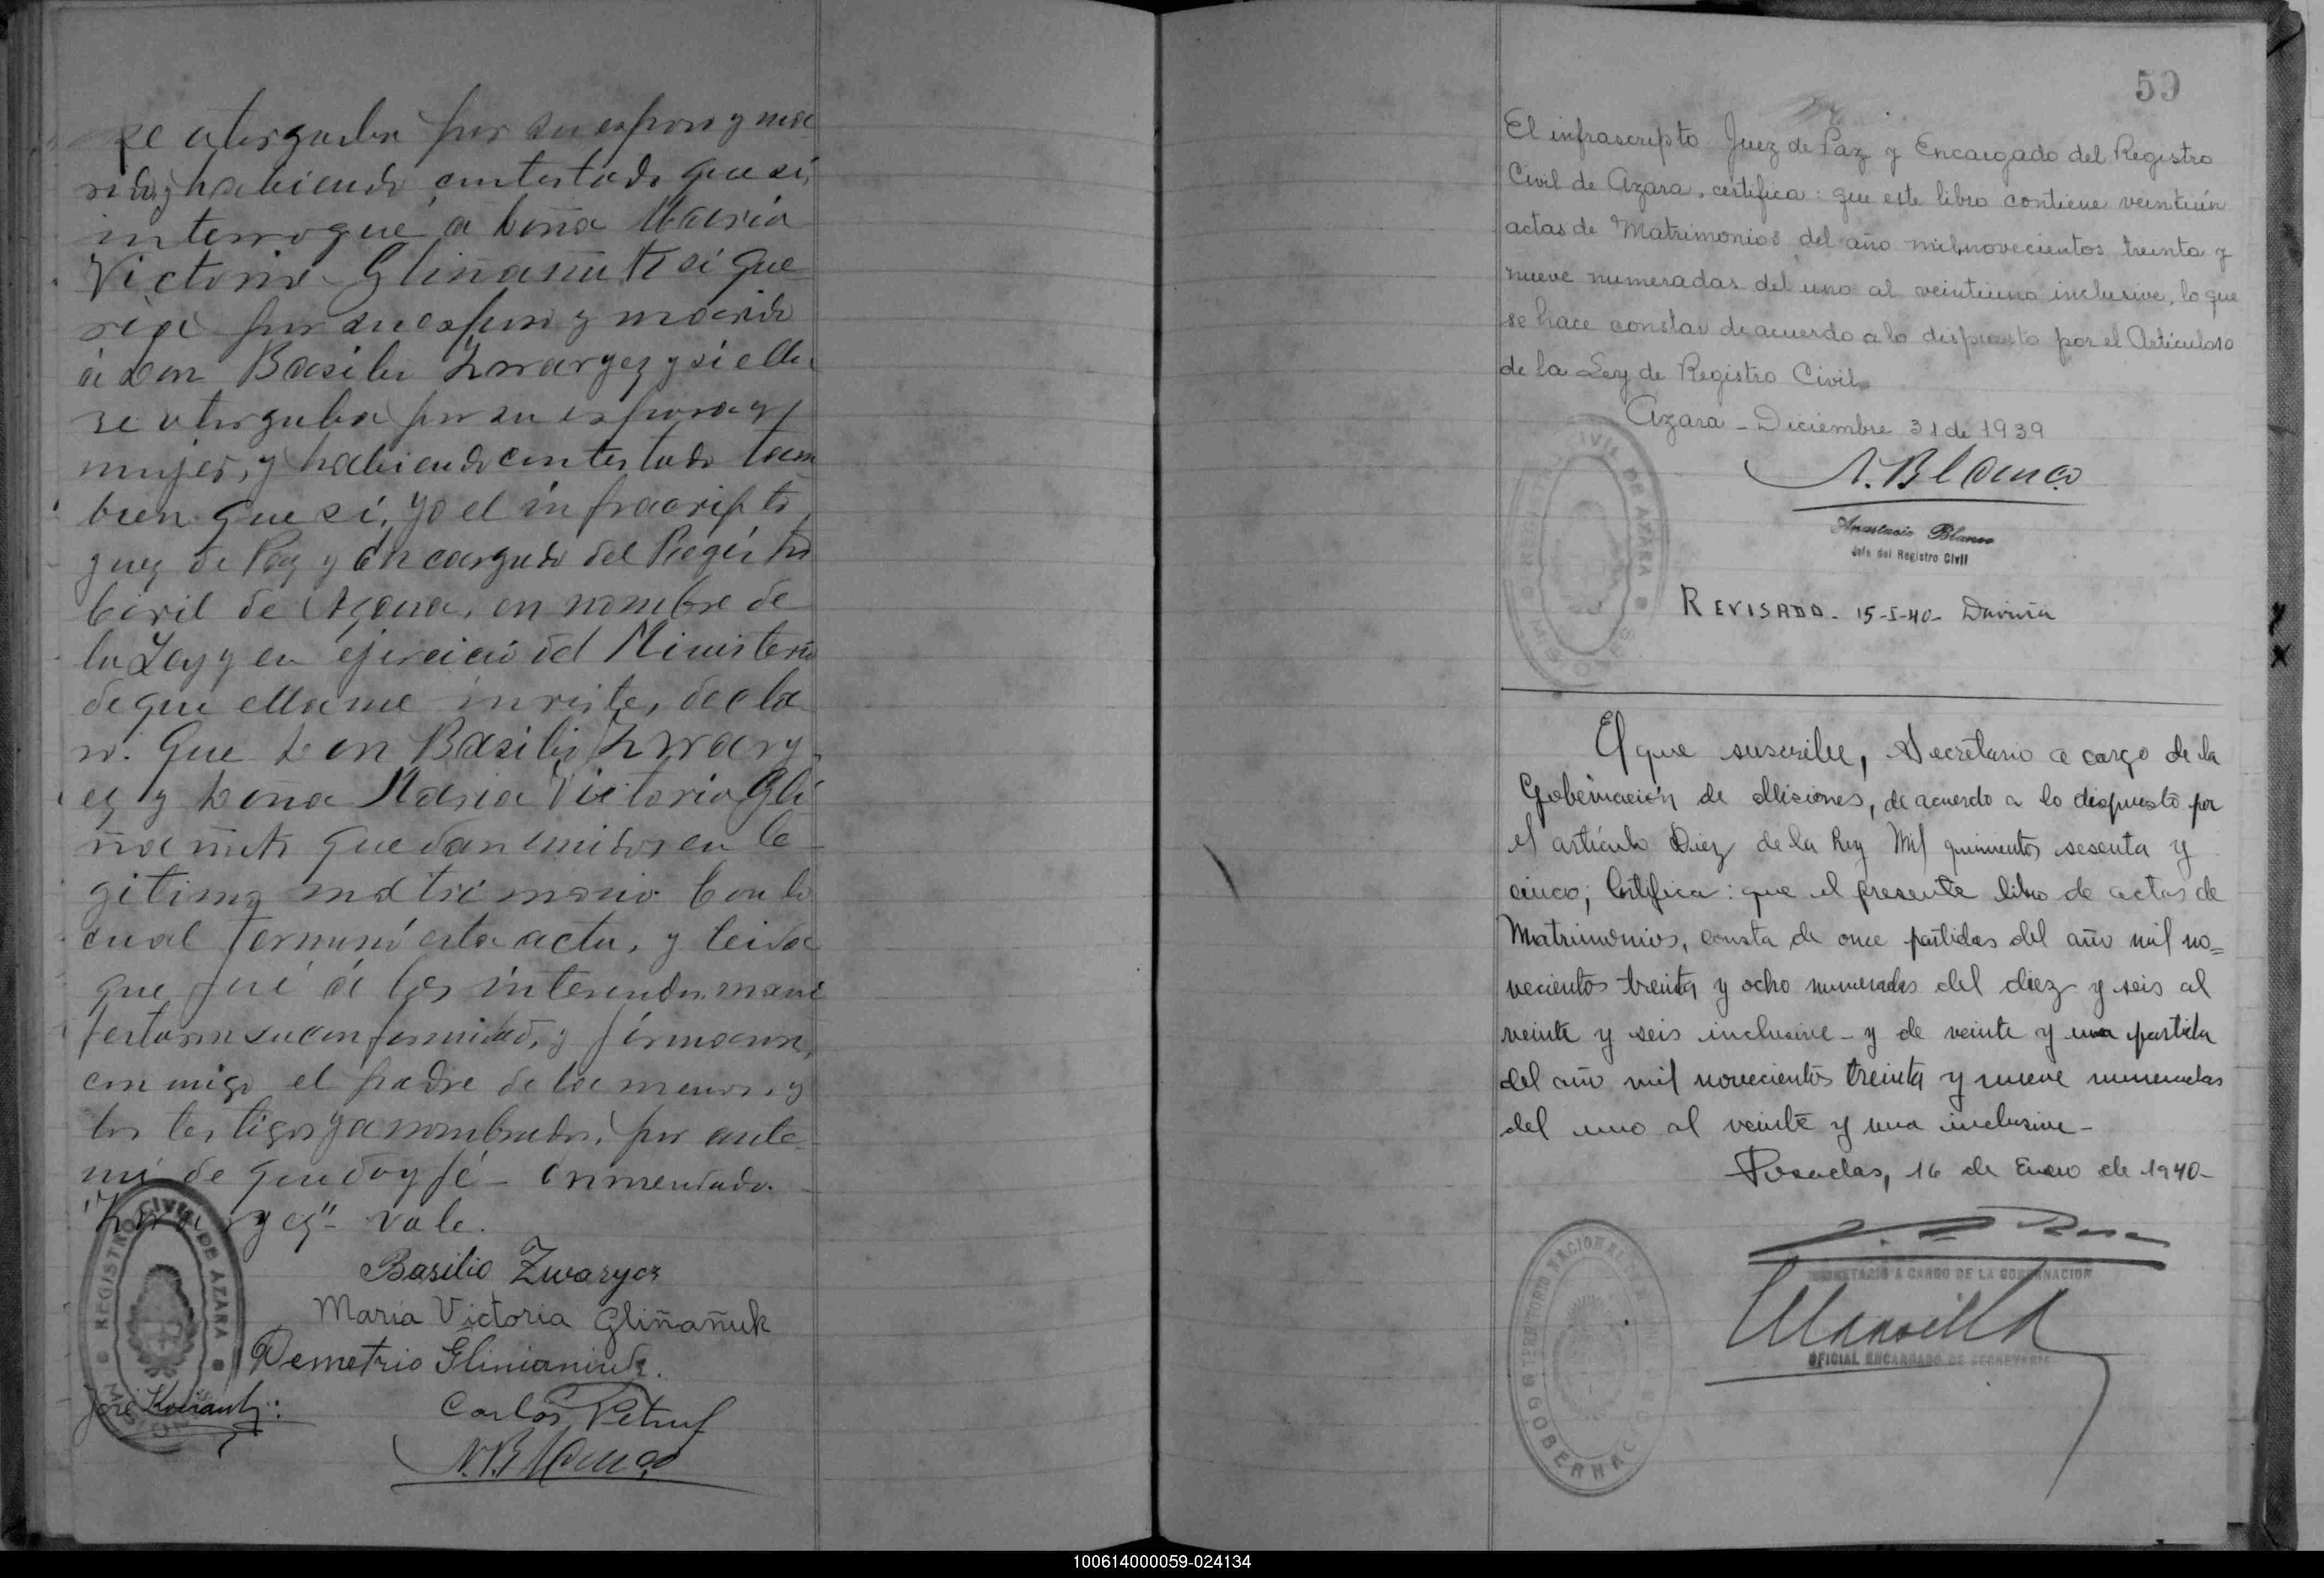 se otorgaba por su esposo y ma
rido, y habiendo contestado que sí,
interrogué á Doña María
Victoria Gliñañuk si que
ría por su esposo y marido
á Don Basilio Zwarycz y si ella
se otorgaba por su esposa y
mujer, y habiendo contestado tam
bien que sí, yo el infrascripto
Juez de Paz y Encargado del Registro
Civil de Azara, en nombre de
la Ley y en ejercicio del Ministerio
de que ella me inviste, decla
ro: Que Don Basilio Zwary
cz y Doña María Victoria Gli
ñañuk quedan unidos en le
gítimo matrimonio Con lo
cual terminó esta acta, y leida
que fué á los interesados mani
festaron su conformidad, y firmaron
conmigo el padre de la menor, y
los testigos ya nombrados, por ante
mí de que doy fé - Enmendado
"Zwarycz" - Vale.
Basilio Zwarycz
María Victoria Gliñañuk
Demetrio Glinianiuk.
José
Carlos
A. Blanco
REGISTRO CIVIL DE AZARA
59
El infrascripto Juez de Paz y Encargado del Registro
Civil de Azara, certifica: que este libro contiene veintiún
actas de Matrimonios del año mil novecientos treinta y
nueve numeradas del uno al veintiuno inclusive, lo que
se hace constar de acuerdo a lo dispuesto por el Artículo 10
de la Ley de Registro Civil.
Azara - Diciembre 31 de 1939
A. Blanco
Anastacio Blanco
Jefe del Registro Civil
REGISTRO CIVIL DE AZARA
REVISADO - 15-I-40 -
El que suscribe, Secretario a cargo de la
Gobernación de Misiones, de acuerdo a lo dispuesto por
el artículo Diez de la Ley Mil quinientos sesenta y
cinco; Certifica: que el presente libro de actas de
Matrimonios, consta de once partidas del año mil no=
vecientos treinta y ocho numeradas del diez y seis al
veinte y seis inclusive - y de veinte y una partida
del año mil novecientos treinta y nueve numeradas
del uno al veinte y una inclusive -
Posadas, 16 de Enero de 1940 -
SECRETARIO A CARGO DE LA GOBERNACION
OFICIAL ENCARGADO DE SECRETARIA
TERRITORIO NACIONAL DE
GOBERNACION
100614000059-024134